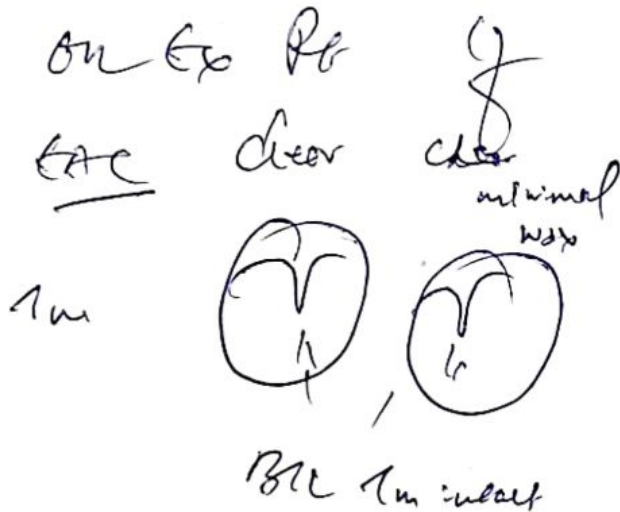 On Ex Rt Lt
EAC clear clear
minimal
wax
Tm
B/L Tm intact